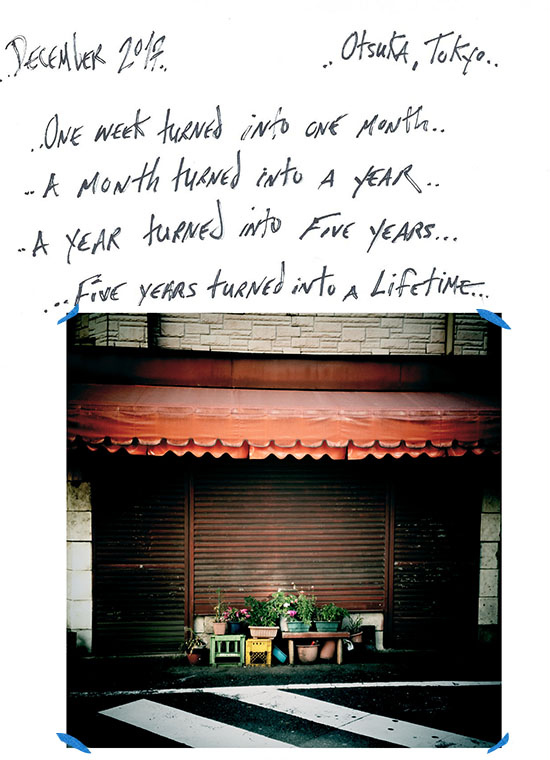 ..December 2017..
..Otsuka, Tokyo..
..One week turned into one month..
..A month turned into a year..
..A year turned into five years...
...Five years turned into a lifetime...